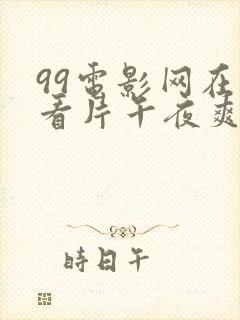 99電影网在
看片午夜爽
時日午